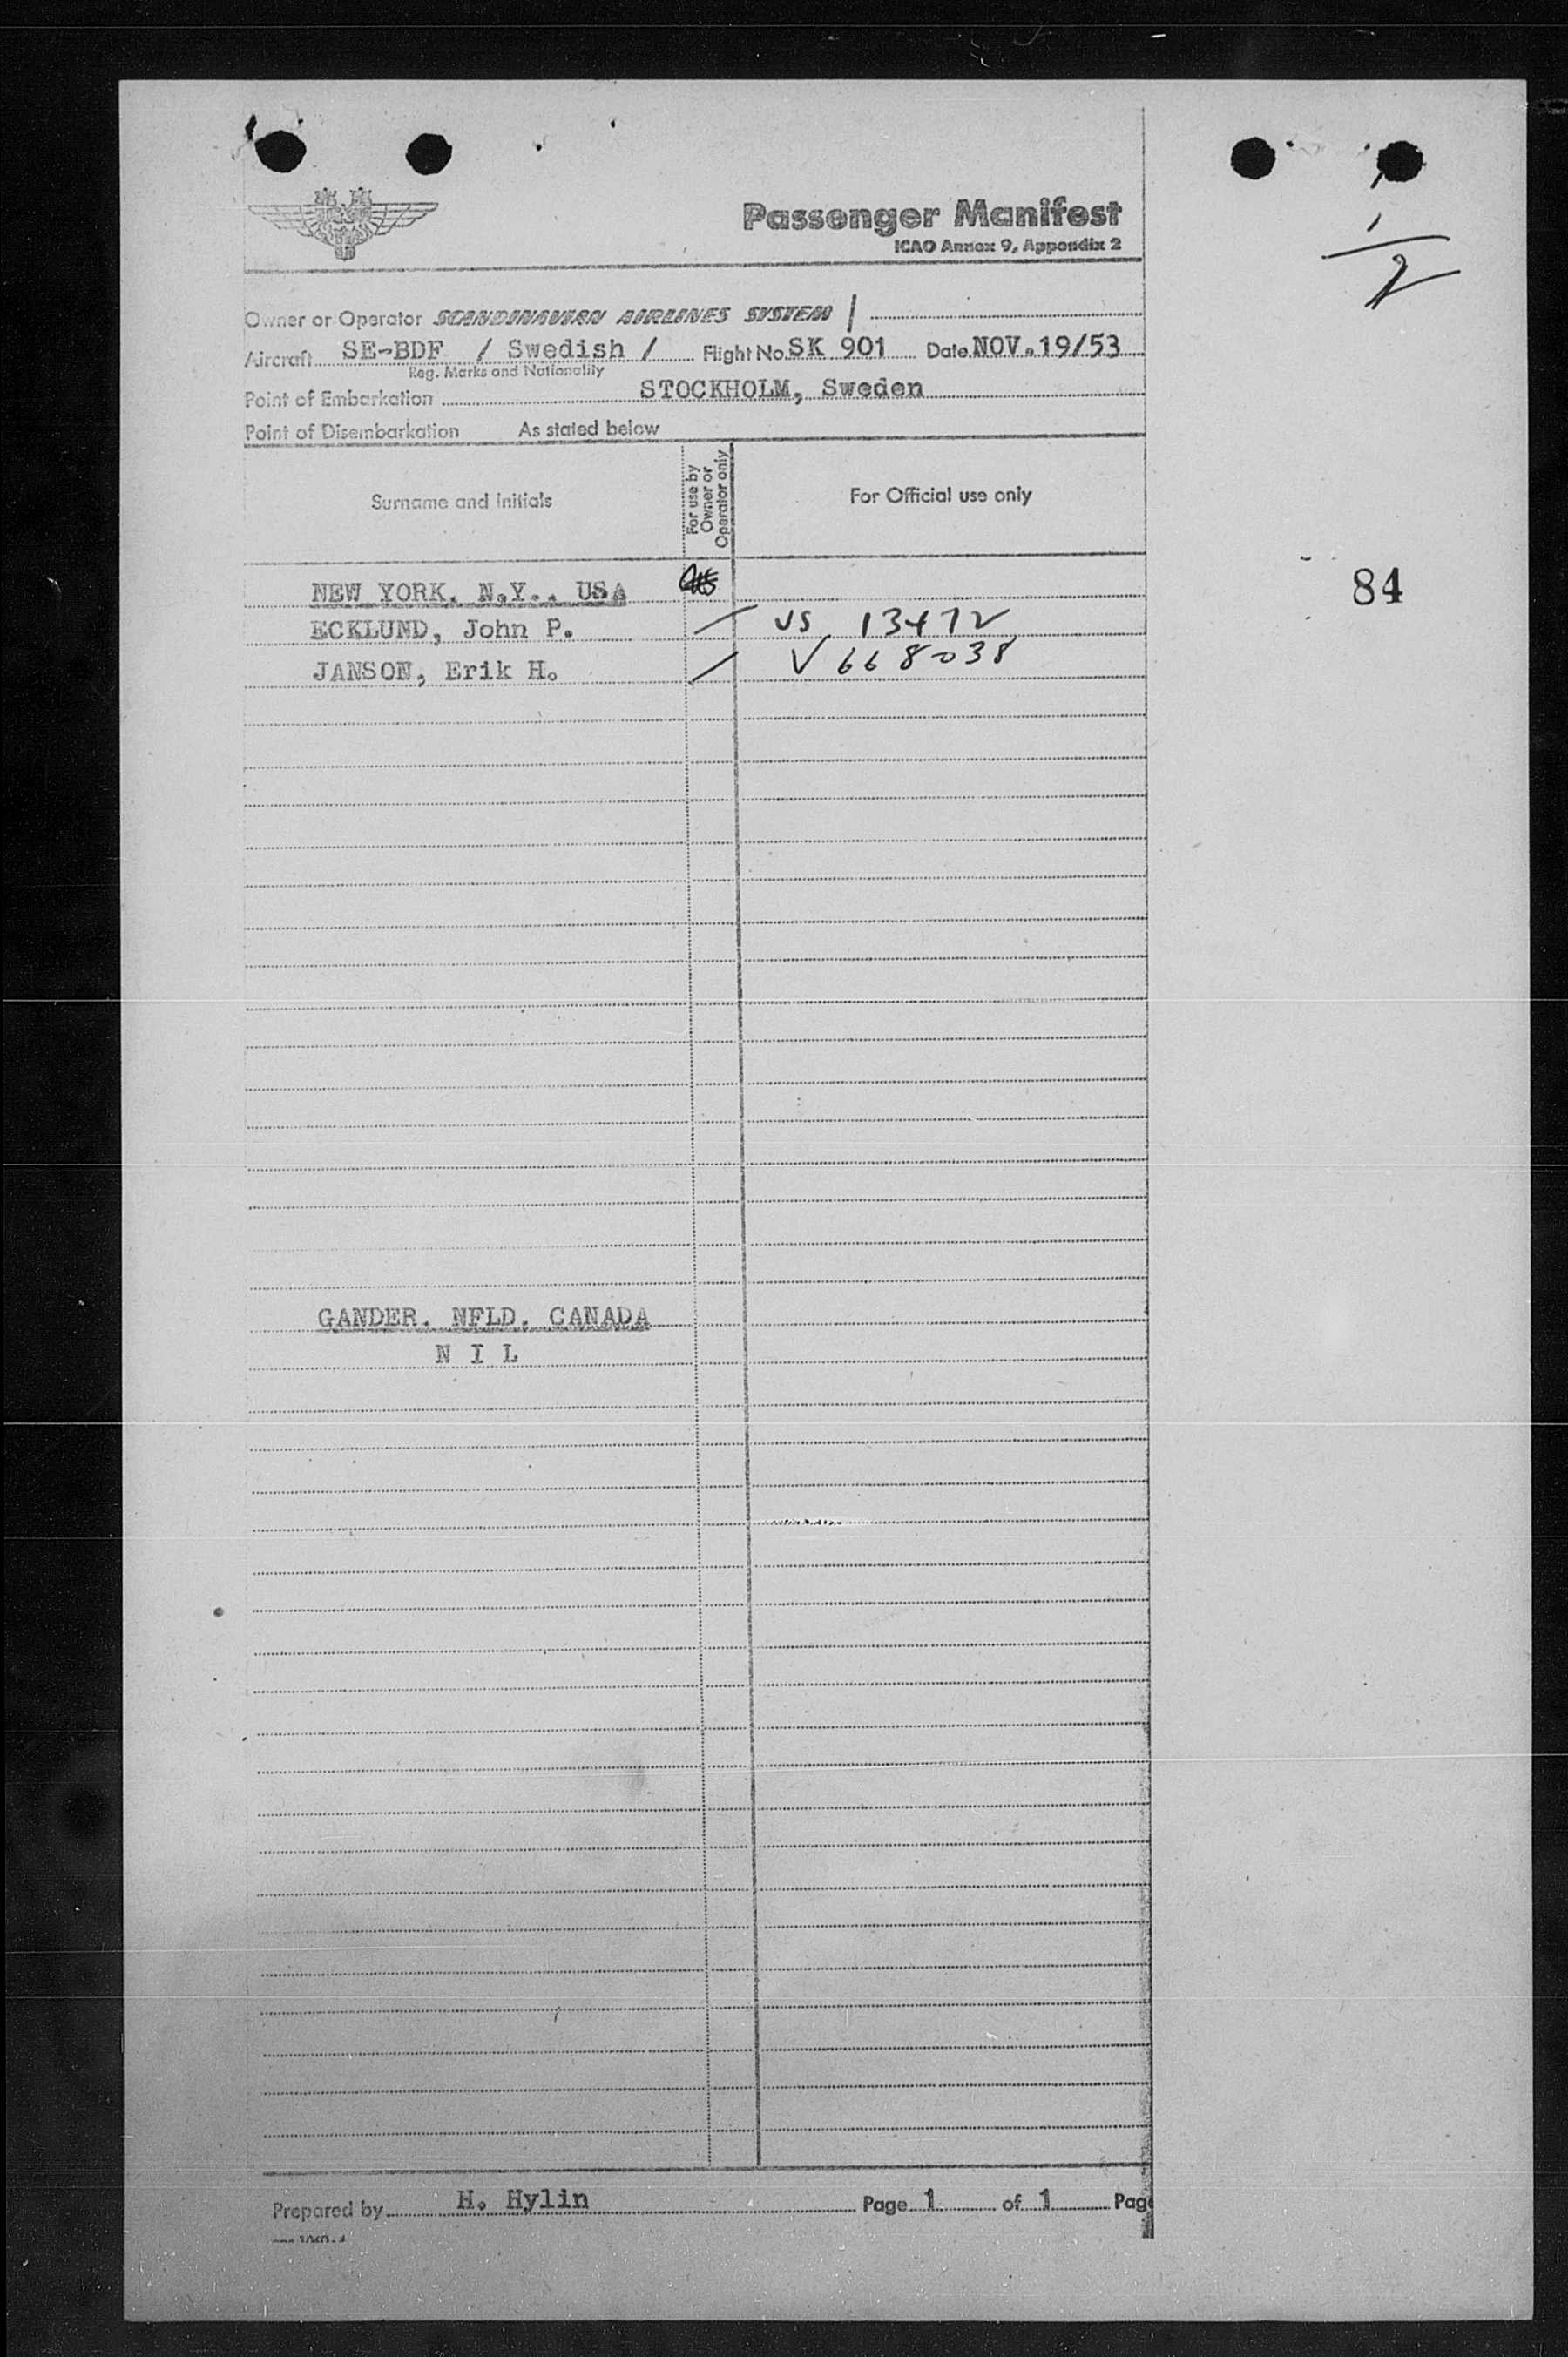 Passenger Manifest
ICAO Annex 9, Appendix 2
1
1
2
Owner or Operator SCANDINAVIAN AIRLINES SYSTEM /
Aircraft SE-BDF / Swedish / Flight No. SK 901 Date NOV. 19/53
Reg. Marks and Nationality
Point of Embarkation STOCKHOLM, Sweden
Point of Disembarkation As stated below
Surname and Initials
For use by
Owner or
Operator only
For Official use only
NEW YORK. N.Y.. USA
84
ECKLUND, John P. / US 13472
JANSON, Erik H. / V 668038
GANDER. NFLD. CANADA
N I L
Prepared by H. Hylin Page 1 of 1 Page